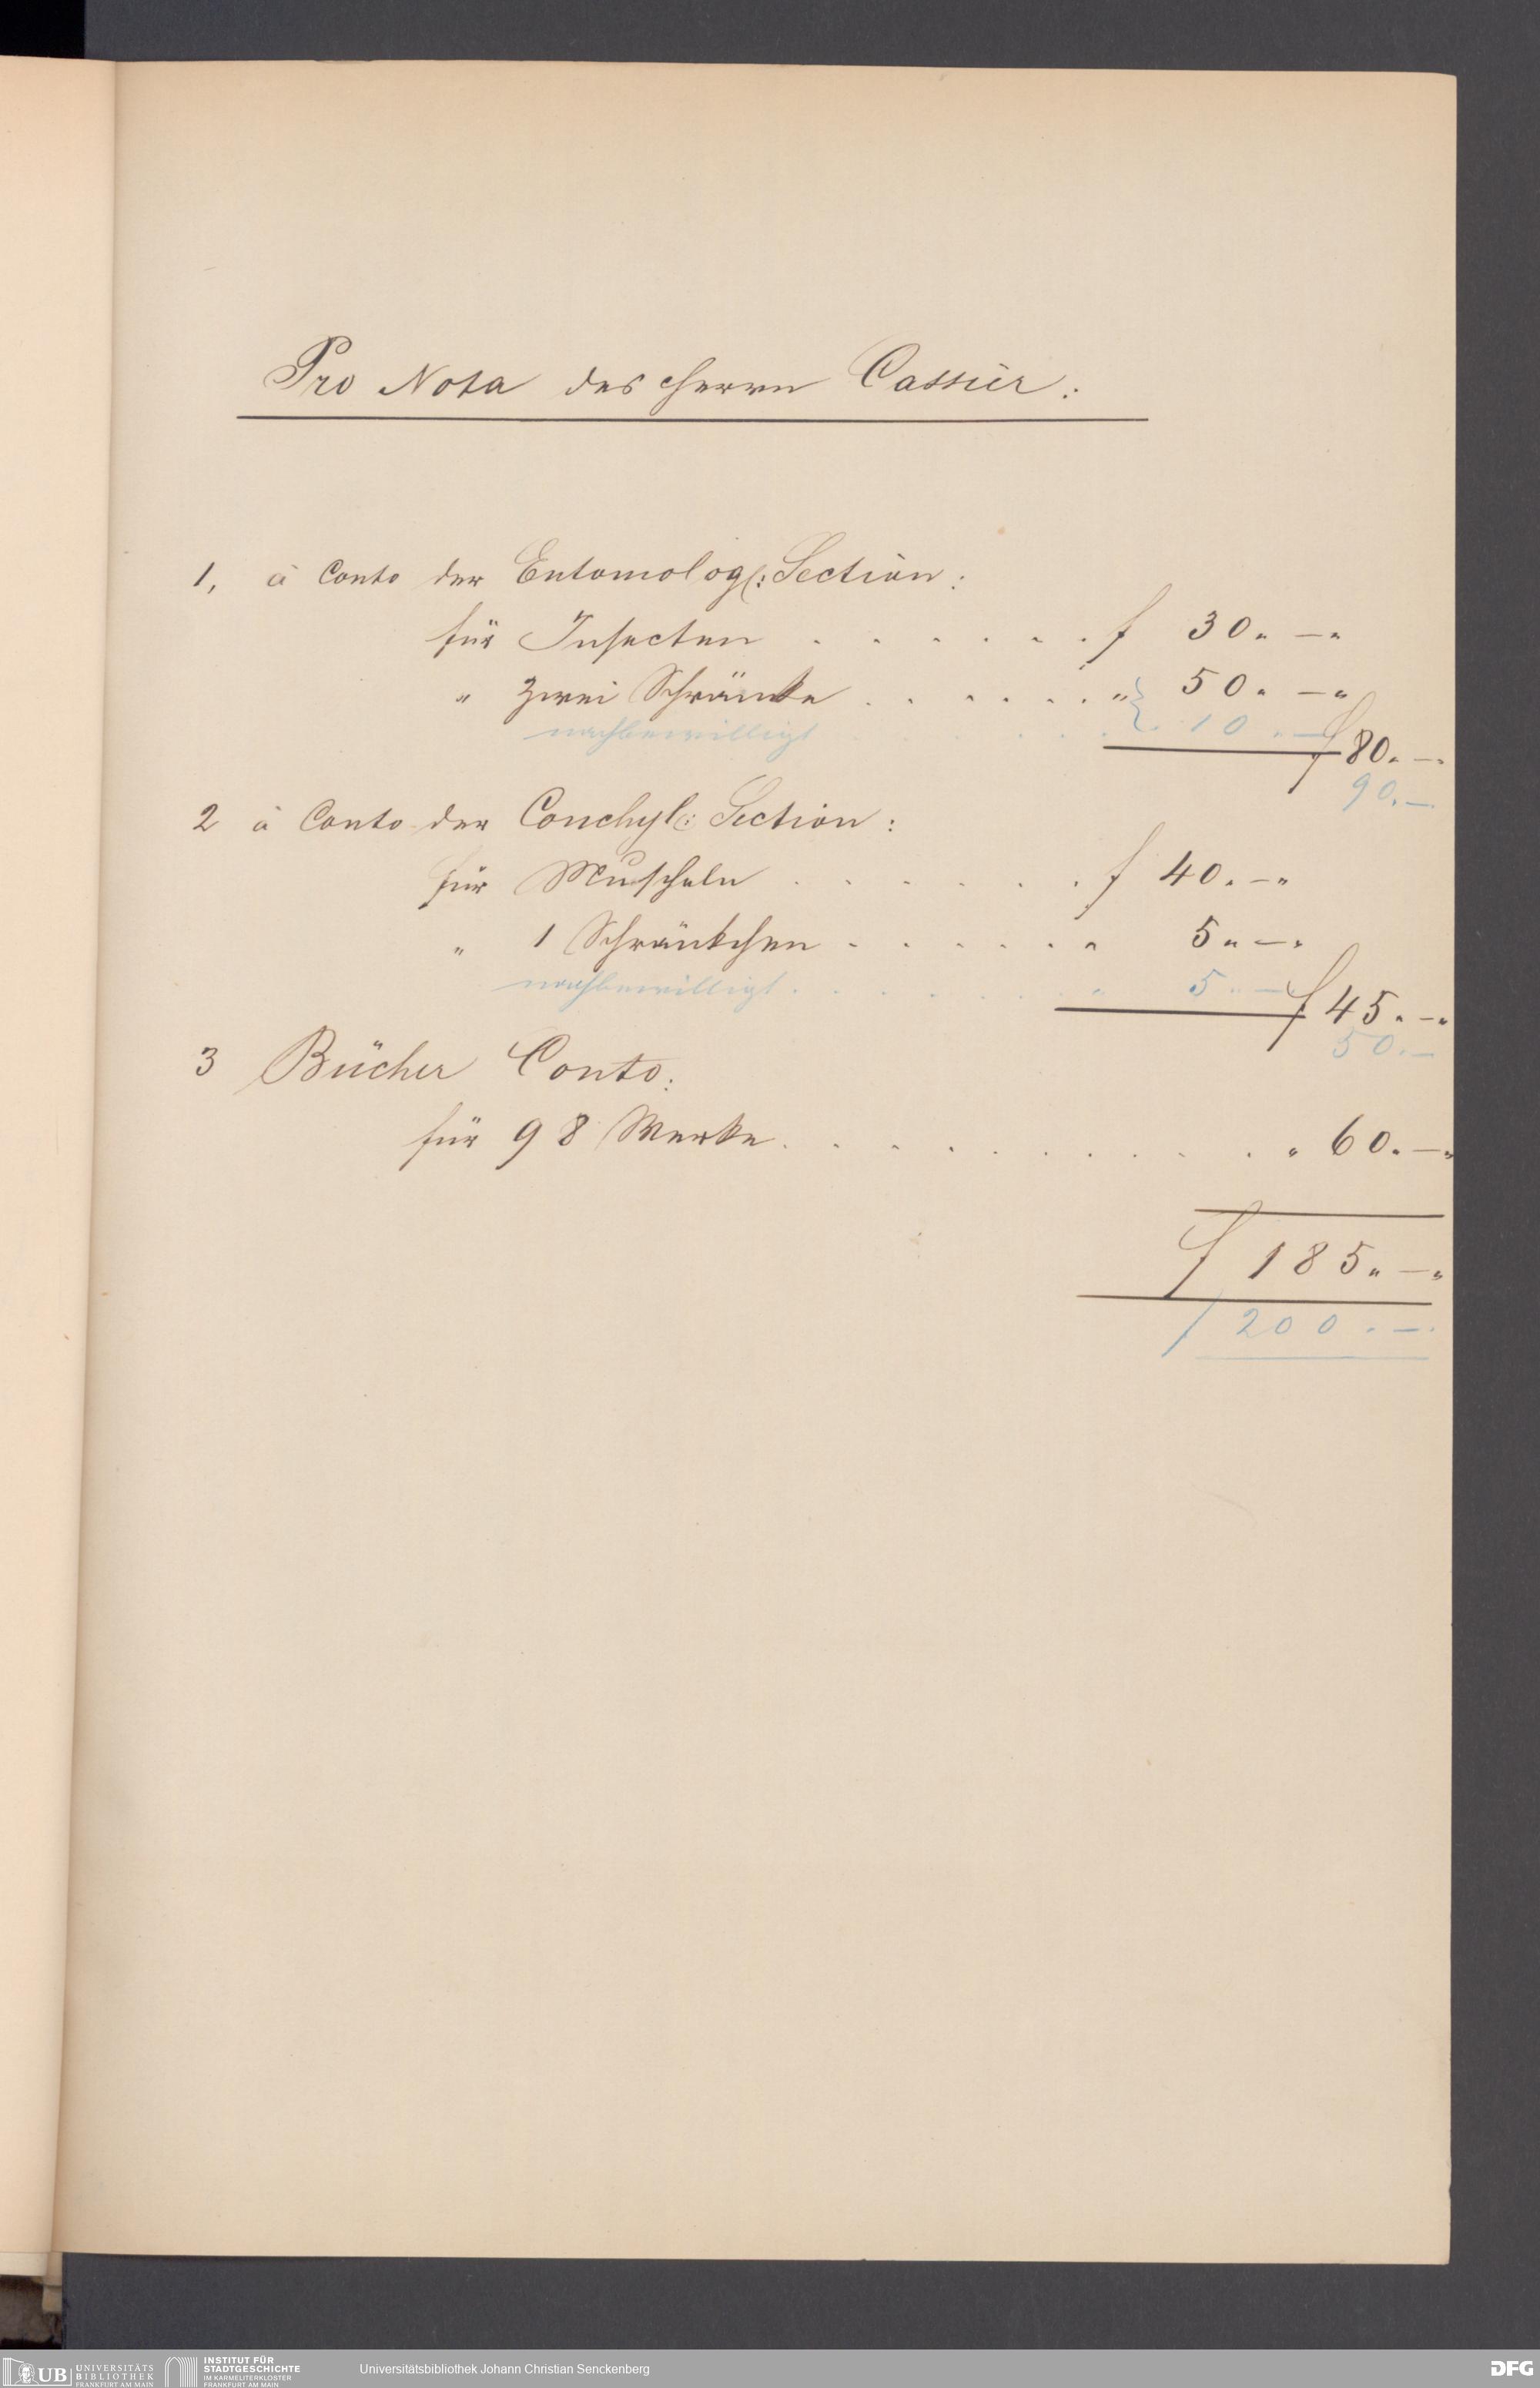 Pro Nota des Herrn Cassier:
1, à Conto der Entomolog: Section:
für Insecten . . . . . . f 30. —.
" zwei Schränke . . . . . . " 50. —.
nachbewilligt . . . . . . 10. —
f 80. —.
90. —
2 à Conto der Conchyl: Section:
für Muscheln . . . . . . f 40. —.
" 1 Schränkchen . . . . . . " 5. —.
nachbewilligt . . . . . . " 5. —
f 45. —.
50. —
3 Bücher Conto:
für 98 Werke . . . . . . . . . . " 60. —.
f 185. —.
f 200. —.
UB UNIVERSITÄTS
BIBLIOTHEK
FRANKFURT AM MAIN
INSTITUT FÜR
STADTGESCHICHTE
IM KARMELITERKLOSTER
FRANKFURT AM MAIN
Universitätsbibliothek Johann Christian Senckenberg
DFG